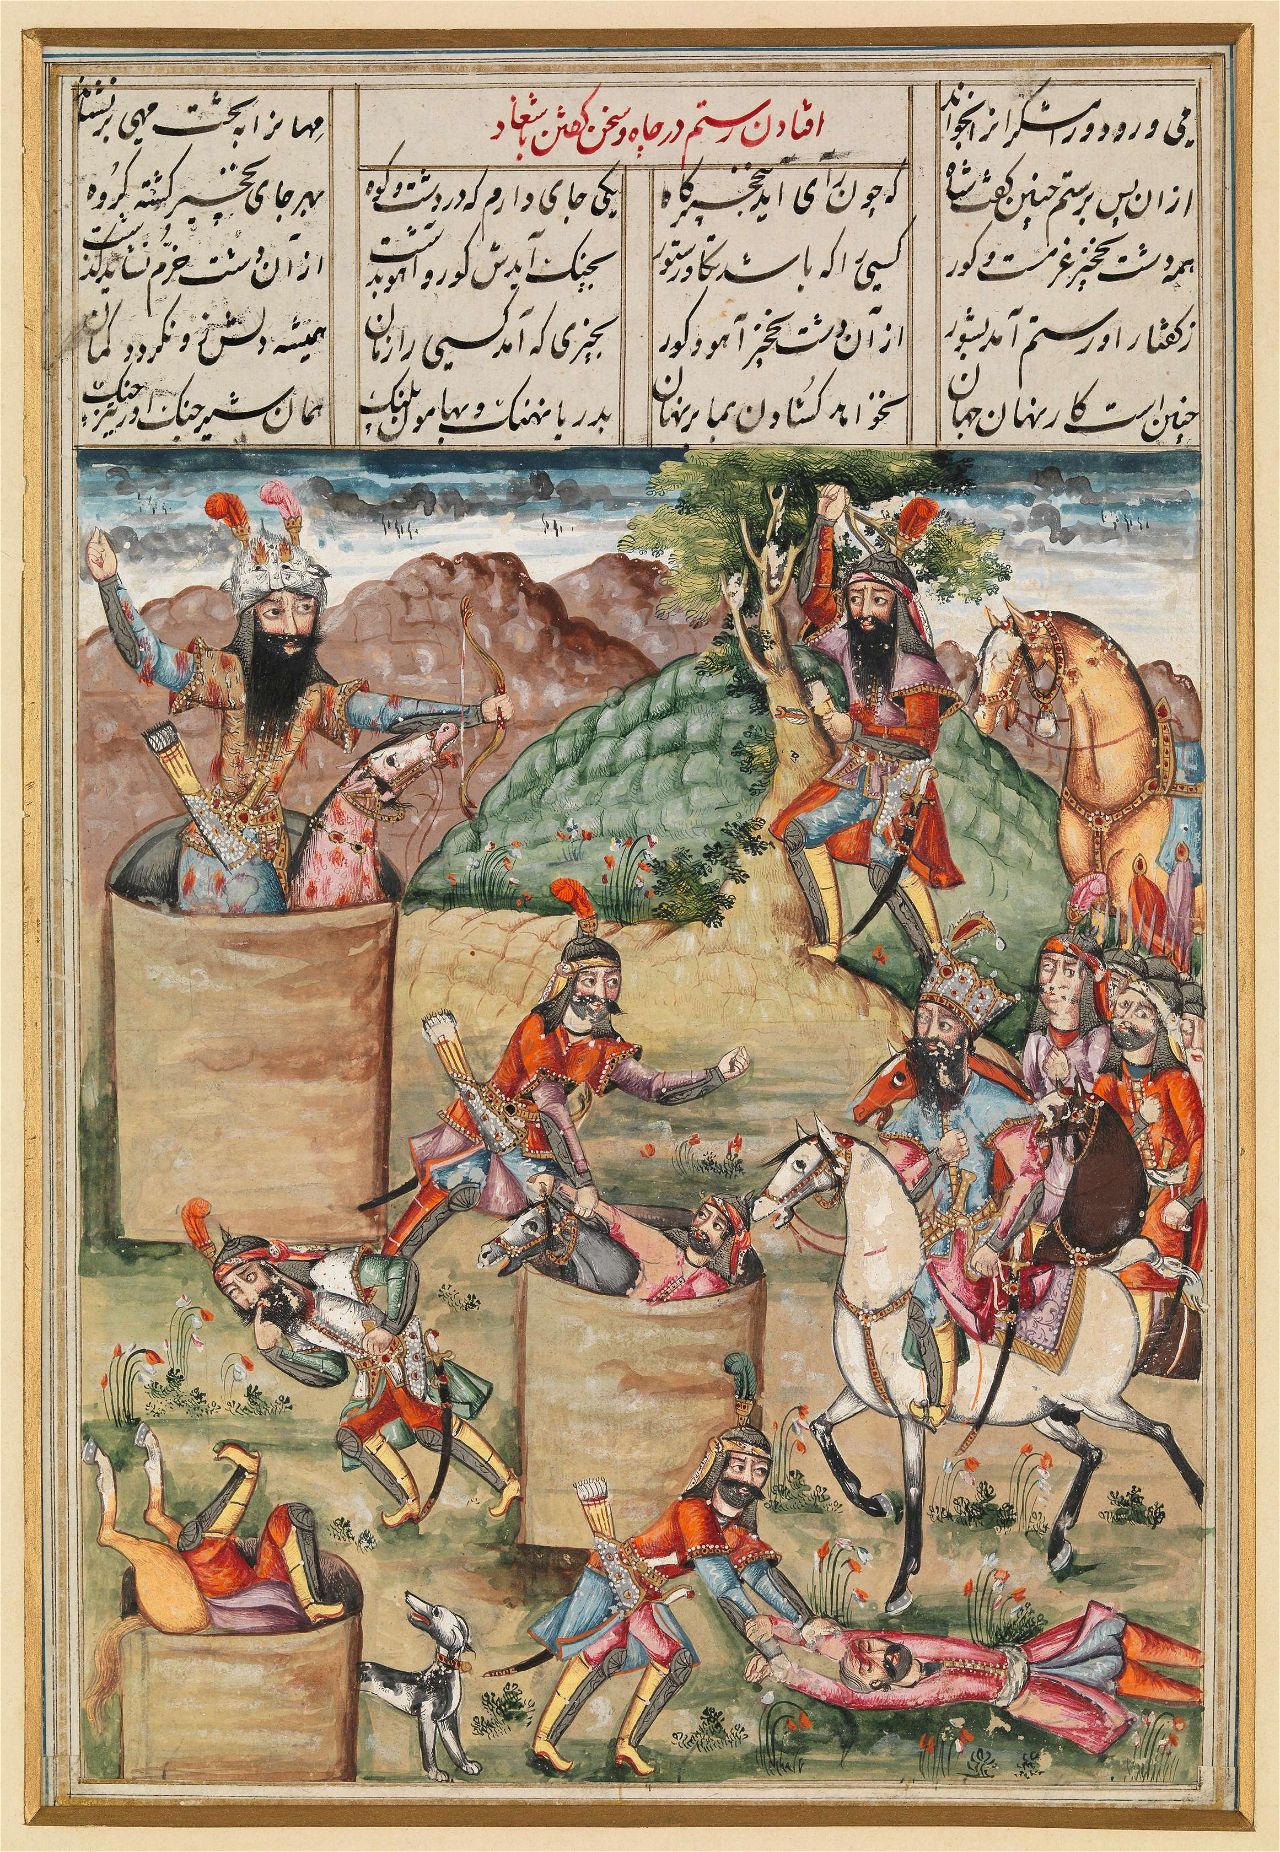 می و رود و رامشگران را بخواند مهان را به تخت مهی برنشاند
افتادن رستم در چاه و سخن گفتن با شغاد
از ان پس برستم چنین گفت شاه که چون رأی آید بنخچیرگاه
یکی جای دارم که در دشت و کوه بهر جای نخچیر گشته گروه
همه دشت نخچیر غرمست و کور کسی را که باشد تکاور ستور
بچنگ آیدش کور و آهو بدشت از آن دشت خرم نشاید گذشت
ز گفتار او رستم آمد بشور از آن دشت نخچیز آهو و کور
بچیزی که آمد کسی را زمان همیشه دلش و نگردد گمان
چنین است کار نهان جهان نخواهد گشادن بما بر نهان
بدریا نهنگ و بهامون پلنگ همان شیر جنگ اور تیز چنگ